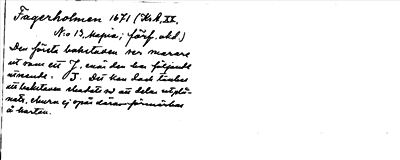 Fagerholmen 1671 (K.A. XX,
No 13, kopia; förf. okd.)
Den första bokstaven ser snarare
ut som ett J, enär den har följande
utseende: J. Det kan dock tänkas
att bokstaven skadats så att delar utplå-
nats, ehuru ej spår därav förmärkas
å kartan.